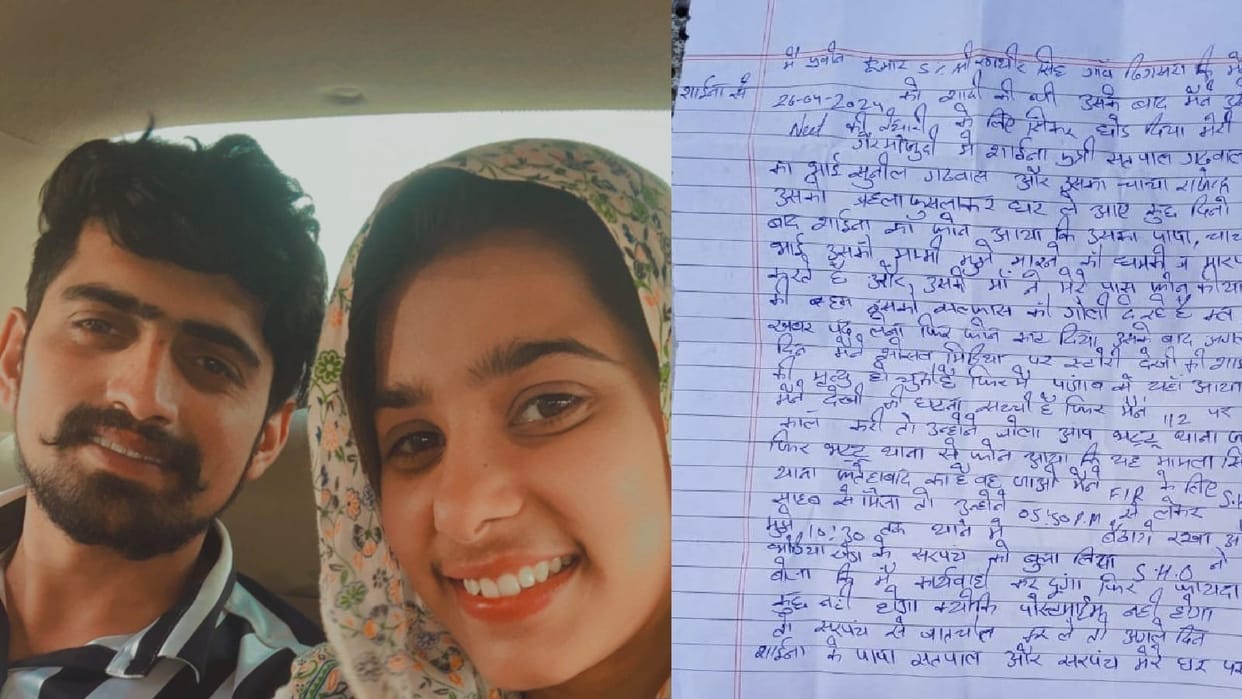 मैं प्रवीन कुमार S/o श्री रणधीर सिंह गाँव ढिंगसरा की
शाईना से 26-04-2024 को शादी की थी उसके बाद मैंने
Neet की तैयारी के लिए सिकर छोड दिया मेरी
गैरमौजुदगी में शाईना पुत्री सतपाल गढवाल
का भाई सुनील गढवाल और इसका चाचा राजेश
उसको बहला फुसलाकर घर ले आए कुछ दिनो
बाद शाईना का फोन आया कि उसका पापा, चाचा
भाई इसकी मम्मी मुझे मारने की धमकी व मारपीट
करते है और, उसकी माँ ने मेरे पास फोन किया
की इसको सल्फास की गोली दे रहे है
खबर पढ़ लेना फिर फोन काट दिया उसके बाद अगले
दिन मैंने सोसल मिडिया पर स्टोरी देखी की शाईना
की मृत्यु हो चुकी है फिर मैं पंजाब से यहा आया
मैंने देखी की घटना सच्ची है फिर मैंने 112 पर
कॉल करी तो उन्होने बोला आप भट्टू थाना जाओ
फिर भट्टू थाना से फोन आया कि यह मामला
थाना फतेहाबाद का है वह जाओ मैंने FIR के लिए S.H.O
साहब से मिला तो उन्होने 05:30 P.M से लेकर
मुझे 10:30 तक थाने में बैठाये रखा
के सरपंच को बुला लिया S.H.O ने
बोला कि मैं कार्यवाही कर दूंगा फिर फायदा
कुछ नही होगा क्योकि पोस्टमार्टम नही होगा
तो सरपंच से बातचीत कर ले तो अगले दिन
शाईना के पापा सतपाल और सरपंच मेरे घर पर